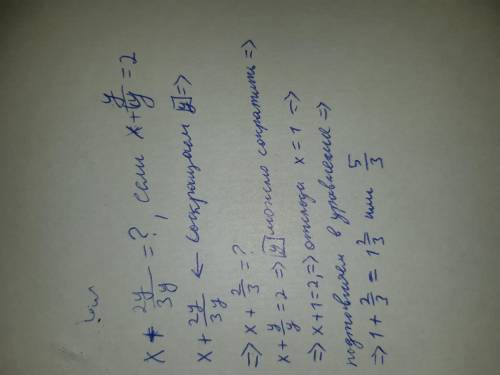 x + 2y/3y = ?, если x + y/y = 2
x + 2y/3y ← сокращаем y =>
=> x + 2/3 = ?
x + y/y = 2 => y можно сократить =>
=> x + 1 = 2, => отсюда x = 1 =>
подставляем в уравнение =>
=> 1 + 2/3 = 1 2/3 или 5/3